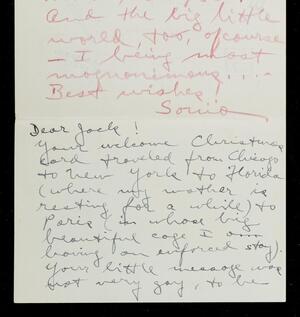 And the big little
world, too, of course
— I being most
magnanimous....
Best wishes!
Sonia
Dear Jack!
Your welcome Christmas
card traveled from Chicago
to New York to Florida
(where my mother is
resting for a while) to
Paris (in whose big
beautiful cage I am
having an enforced stay).
Your little message was
not very gay, to be